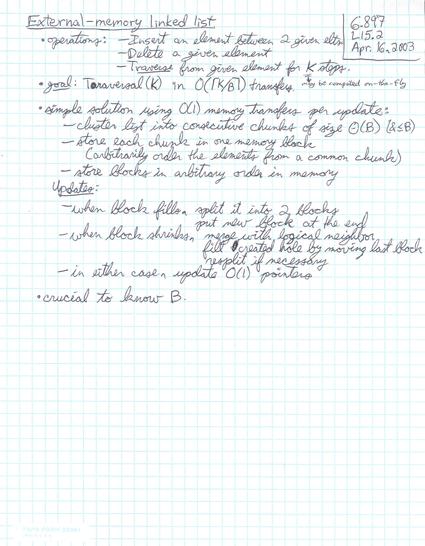 External-memory linked list
6.897
L15.2
Apr. 16, 2003
• operations: – Insert an element between 2 given elts.
– Delete a given element
– Traverse from given element for K steps.
may be computed on-the-fly
• goal: Traversal(K) in O(⌈K/B⌉) transfers
• simple solution using O(1) memory transfers per update:
– cluster list into consecutive chunks of size Θ(B) (& ≤ B)
– store each chunk in one memory block
(arbitrarily order the elements from a common chunk)
– store blocks in arbitrary order in memory
Updates:
– when block fills, split it into 2 blocks
put new block at the end
– when block shrinks, merge with logical neighbor
fill created hole by moving last block
resplit if necessary
– in either case, update O(1) pointers
• crucial to know B.